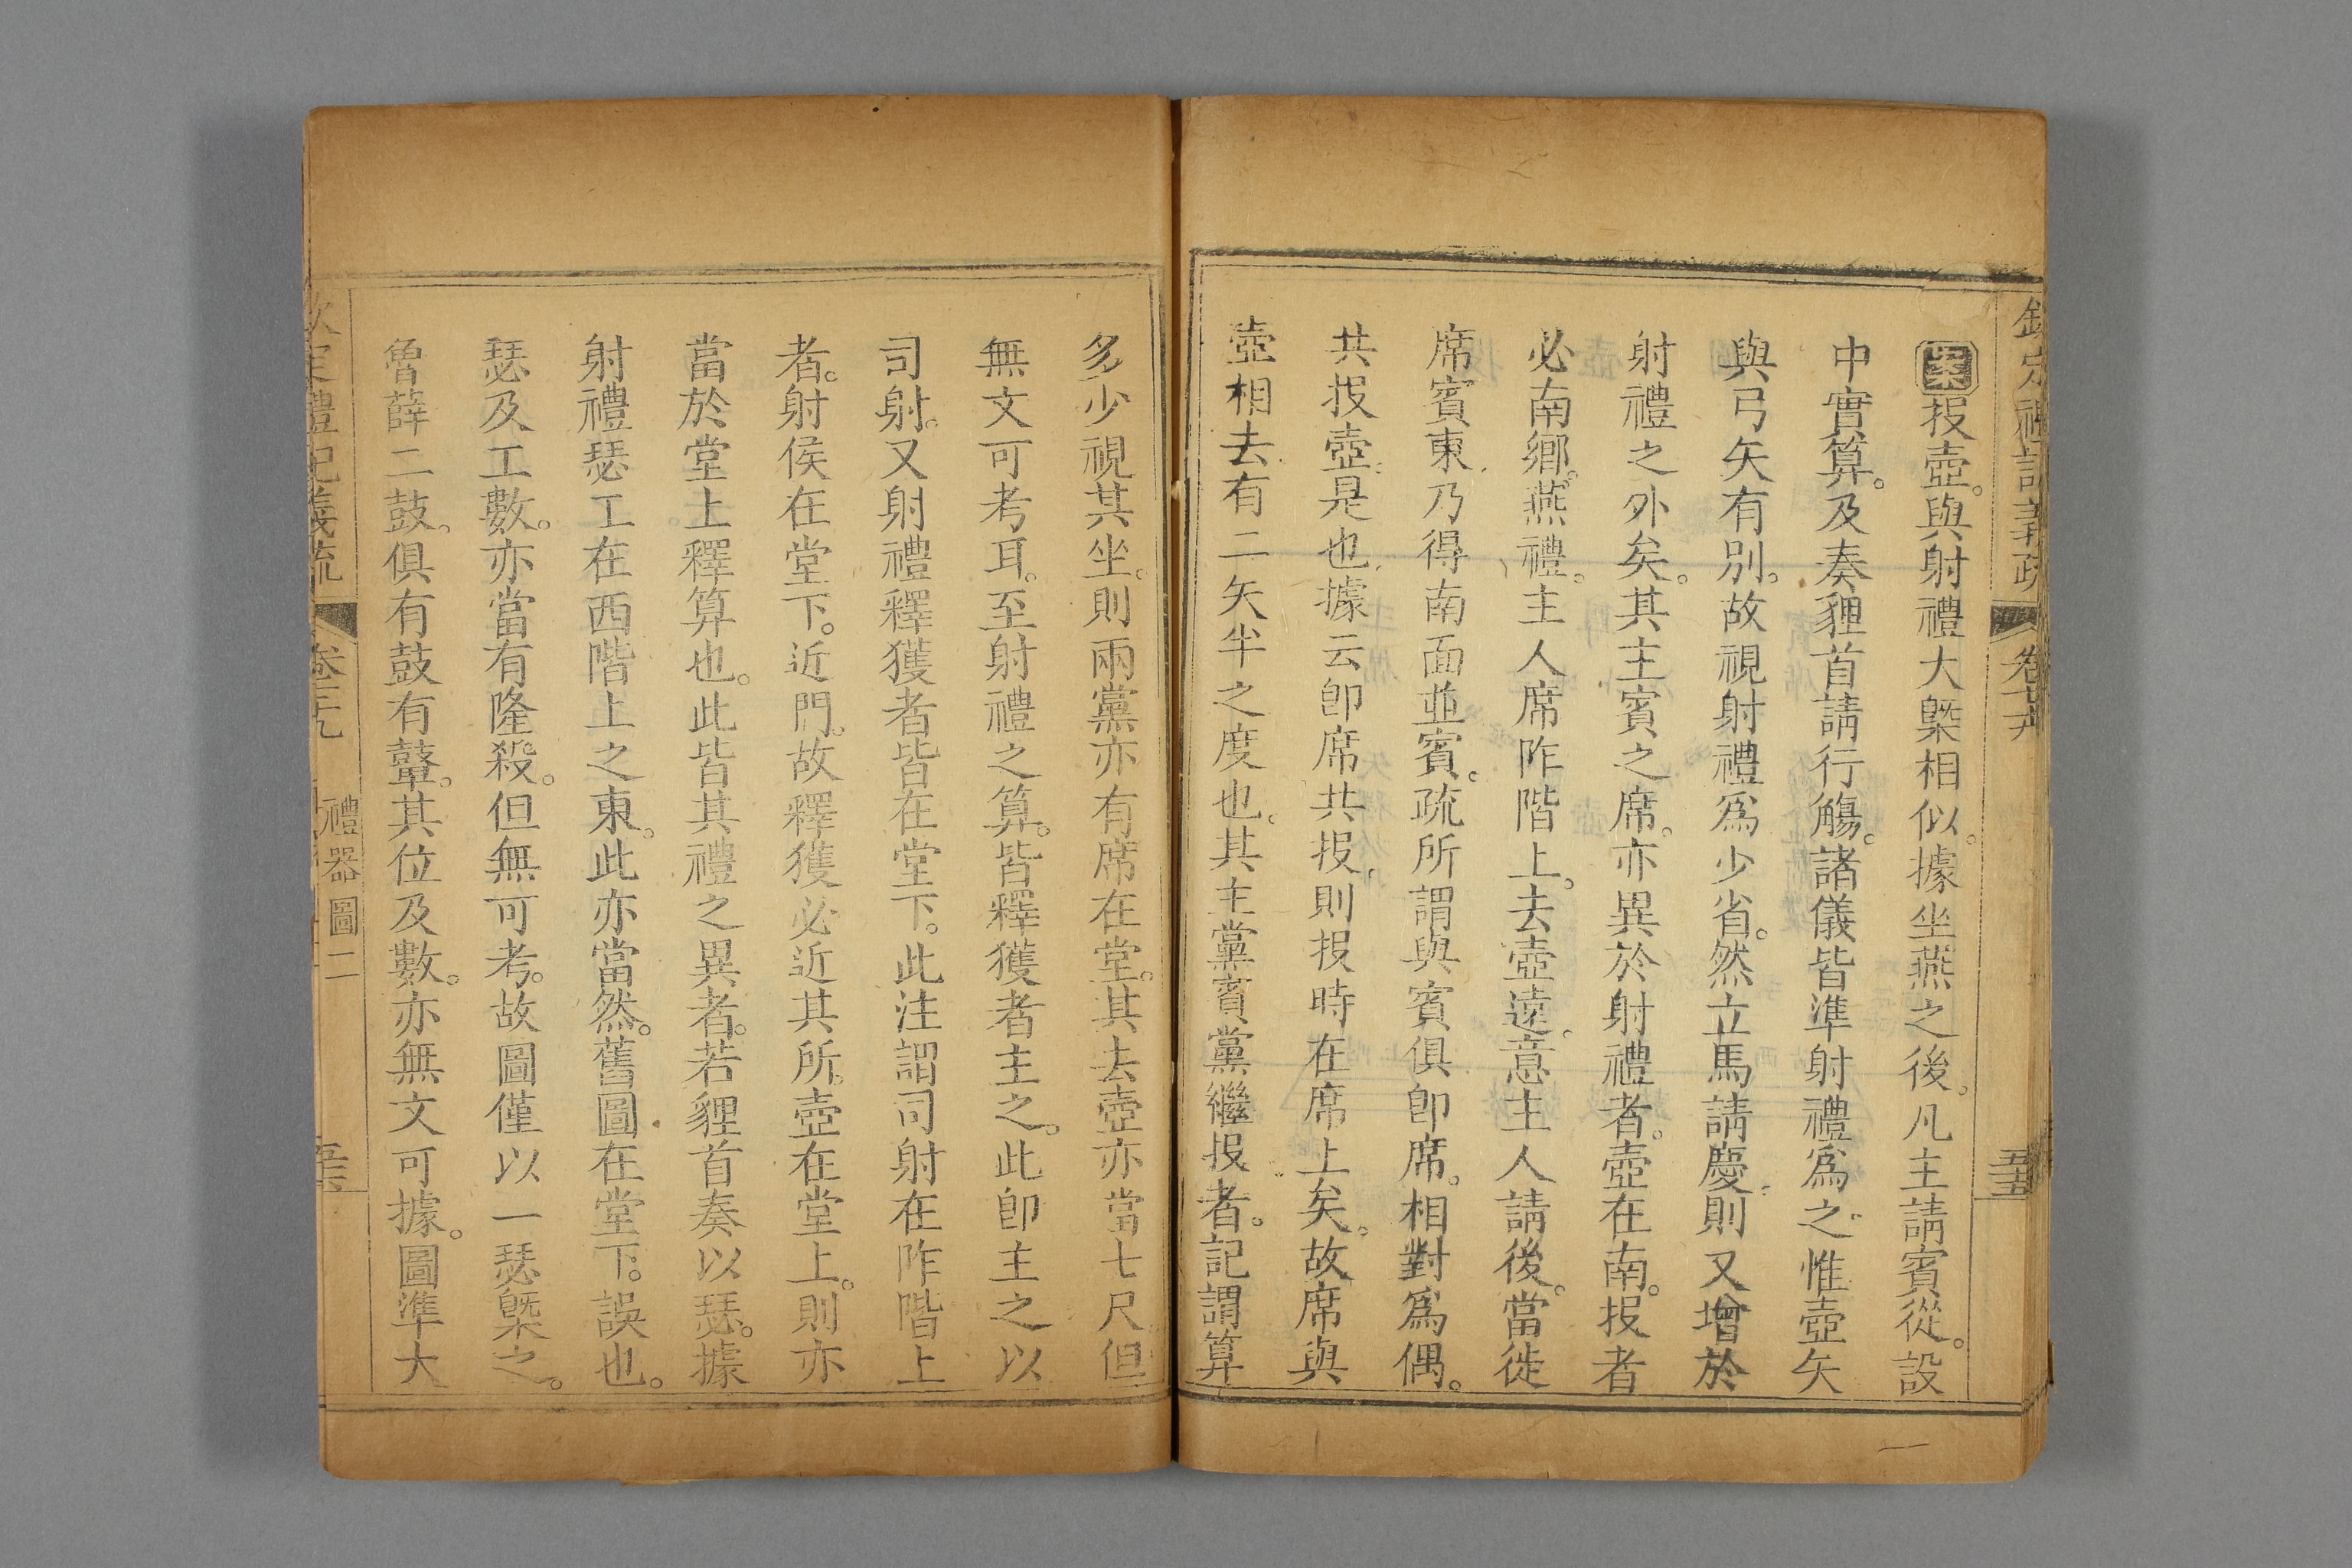 欽定禮記義疏 卷七十九 五十五
案投壺。與射禮大槩相似。據坐燕之後。凡主請賓從。設
中實算。及奏貍首請行觴。諸儀皆準射禮爲之。惟壺矢
與弓矢有別。故視射禮爲少省。然立馬請慶。則又增於
射禮之外矣。其主賓之席。亦異於射禮者。壺在南。投者
必南鄉。燕禮。主人席阼階上。去壺遠。意主人請後。當徙
席賓東。乃得南面並賓。疏所謂與賓俱卽席。相對爲偶。
共投壺。是也。據云卽席共投。則投時在席上矣。故席與
壺相去有二矢半之度也。其主黨賓黨繼投者。記謂算
多少視其坐。則兩黨亦有席在堂。其去壺亦當七尺但
無文可考耳。至射禮之算。皆釋獲者主之。此卽主之以
司射。又射禮釋獲者皆在堂下。此注謂司射在阼階上
者。射侯在堂下。近門。故釋獲必近其所。壺在堂上。則亦
當於堂上釋算也。此皆其禮之異者。若貍首奏以瑟。據
射禮瑟工在西階上之東。此亦當然。舊圖在堂下。誤也。
瑟及工數。亦當有隆殺。但無可考。故圖僅以一瑟槩之。
魯薛二鼓。俱有鼓有鼙。其位及數。亦無文可據。圖準大
欽定禮記義疏 禮器圖二